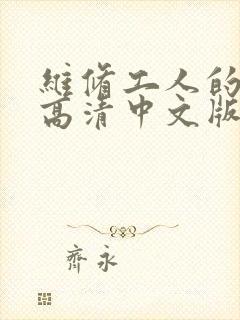 維脩工人的
高清中文版
齊永